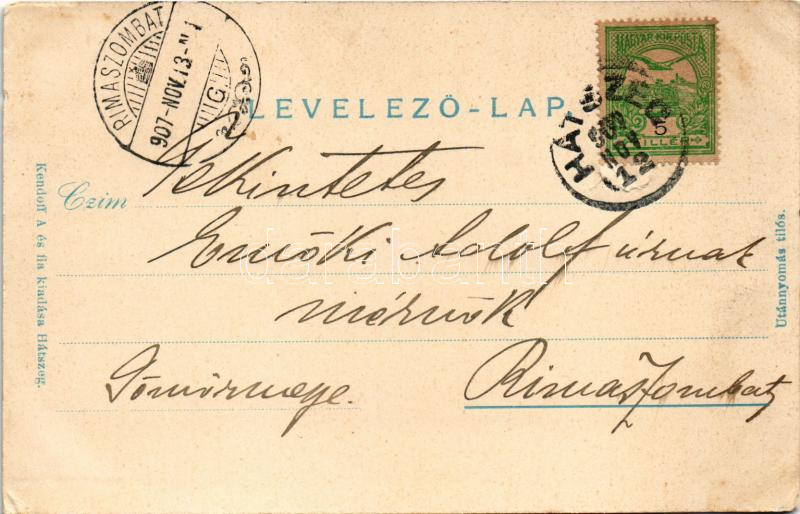 RIMASZOMBAT
907-NOV.13-N1
G
MAGYAR KIR. POSTA
5
HÁTSZEG
NOV
12
LEVELEZŐ-LAP
Czim
Tekintetes
Emőki Adolf úrnak
mérnök
Gömörmegye.
Rimaszombat
Kendoff A és fia kiadása Hátszeg.
Utánnyomás tilós.
darabanth